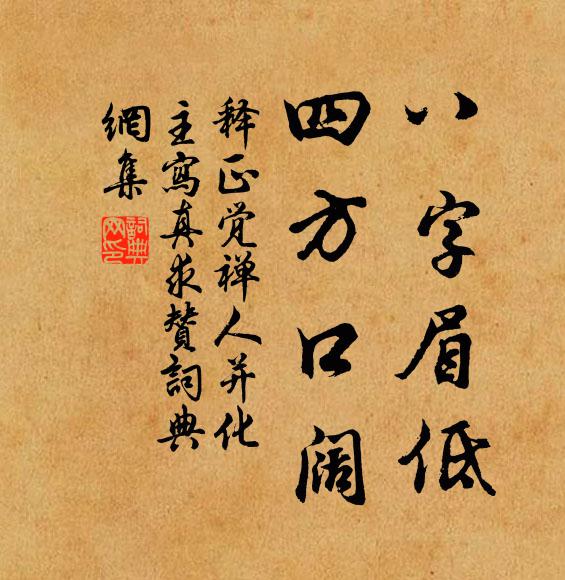 八字眉低
四方口阔
释正觉禅人并化
主寫真求赞詞典
網集
詞典
网印